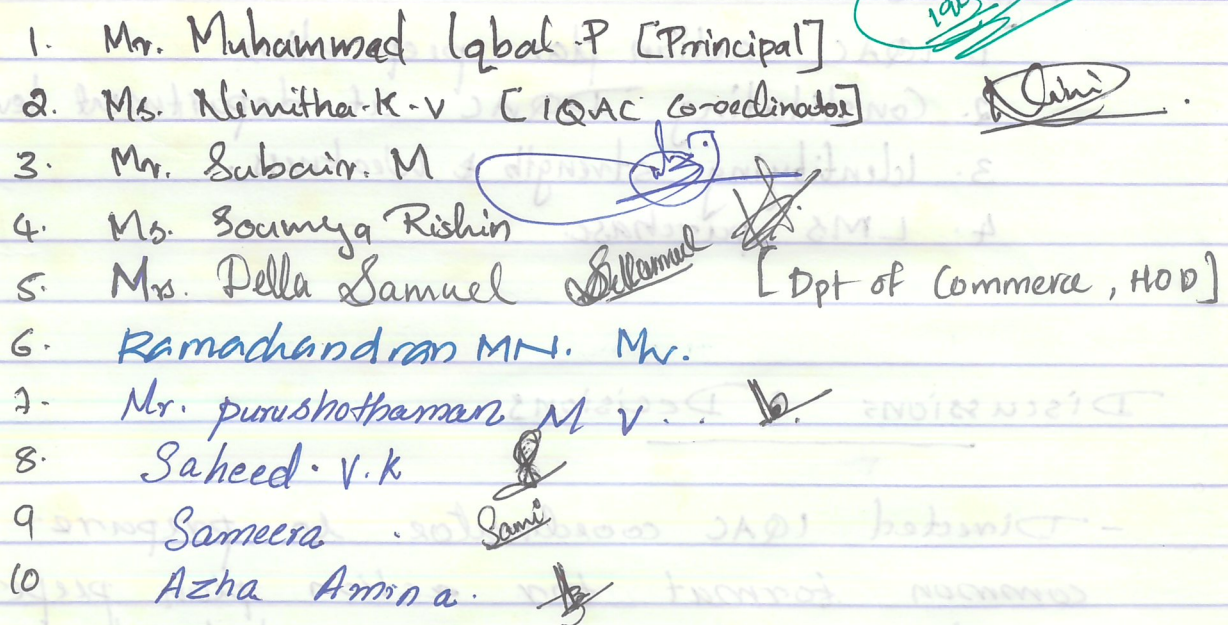 1. Mr. Muhammed Iqbal .P [Principal]
2. Ms. Nimitha.K.V [IQAC Co-oedinator]
3. Mr. Subair. M
4. Ms. Soumya Rishin
5. Mrs. Della Samuel [Dpt of Commerce, HOD]
6. Ramachandran MN. Mr.
7. Mr. purushothaman M V . .
8. Saheed . V.K
9 Sameera . Sami
10 Azha Amina.